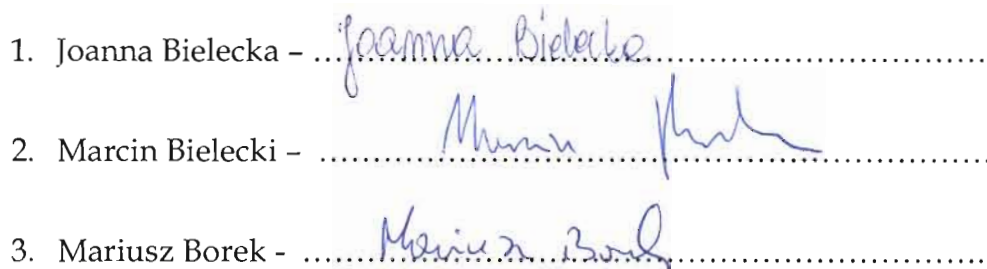 1. Joanna Bielecka – Joanna Bielecka
2. Marcin Bielecki – Marcin
3. Mariusz Borek - Mariusz Borek